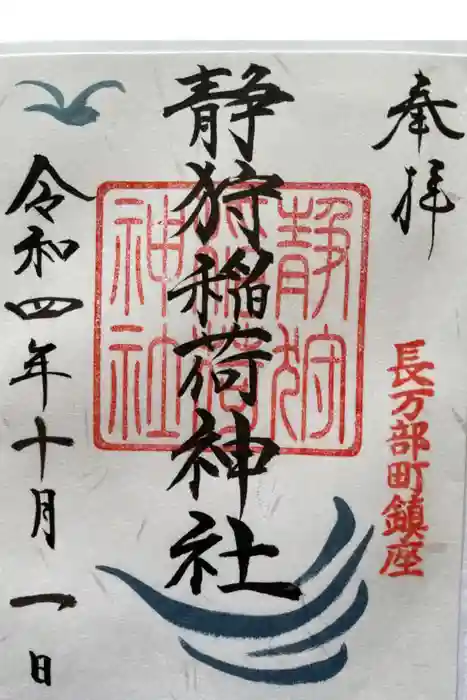 奉拝
長万部町鎮座
静狩稲荷神社
静狩
稲荷
神社
令和四年十月一日